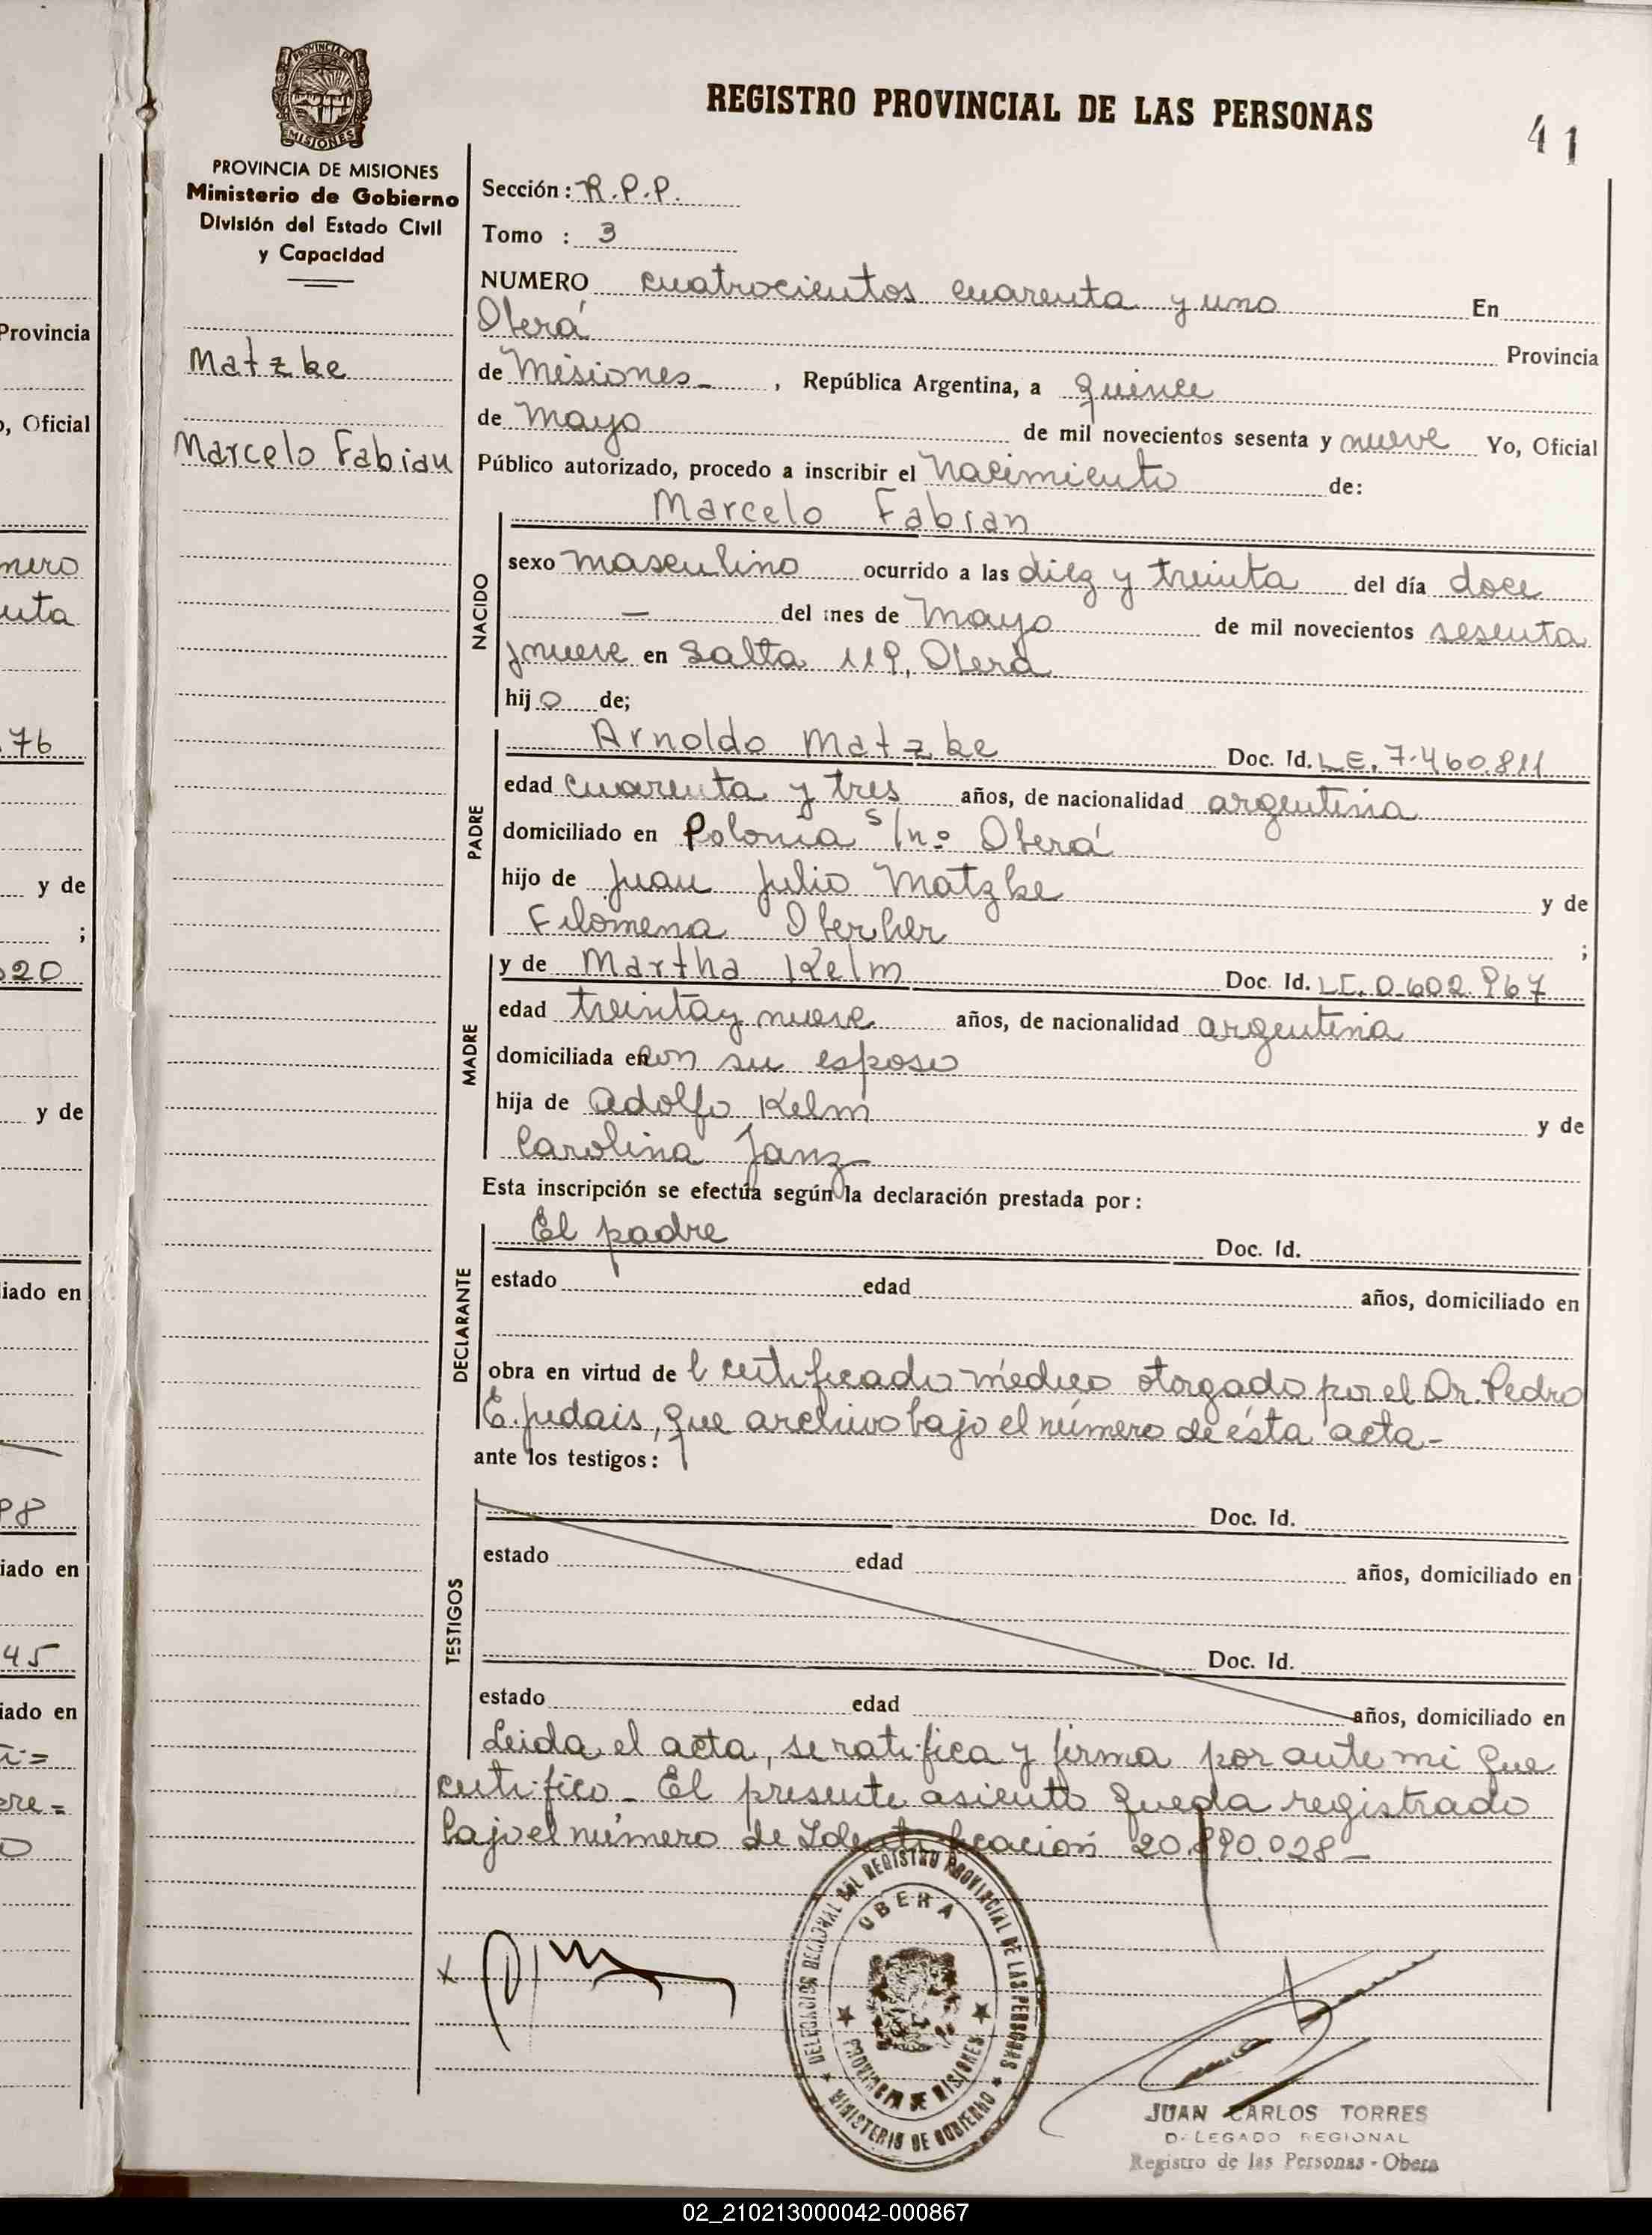 REGISTRO PROVINCIAL DE LAS PERSONAS
41
PROVINCIA DE MISIONES
PROVINCIA DE MISIONES
Ministerio de Gobierno
División del Estado Civil
y Capacidad
Matzke
Marcelo Fabian
Sección: R.P.P.
Tomo : 3
NUMERO cuatrocientos cuarenta y uno En
Oberá Provincia
de Misiones , República Argentina, a quince
de Mayo de mil novecientos sesenta y nueve Yo, Oficial
Público autorizado, procedo a inscribir el nacimiento de:
Marcelo Fabian
NACIDO
sexo masculino ocurrido a las diez y treinta del día doce
— del mes de Mayo de mil novecientos sesenta
y nueve en Salta 119, Oberá
hijo de;
PADRE
Arnoldo Matzke Doc. Id. L.E. 7.460.811
edad cuarenta y tres años, de nacionalidad argentina
domiciliado en Polonia s/nº Oberá
hijo de Juan Julio Matzke y de
Filomena Oberher ;
MADRE
y de Martha Kelm Doc. Id. L.C. 0.602.967
edad treinta y nueve años, de nacionalidad argentina
domiciliada en con su esposo
hija de Adolfo Kelm y de
Carolina Janz
Esta inscripción se efectúa según la declaración prestada por:
DECLARANTE
El padre Doc. Id.
estado edad años, domiciliado en
obra en virtud de l certificado médico otorgado por el Dr. Pedro
E. Judais, que archivo bajo el número de ésta acta-
ante los testigos:
TESTIGOS
Doc. Id.
estado edad años, domiciliado en
Doc. Id.
estado edad años, domiciliado en
Leida el acta, se ratifica y firma por ante mi que
certifico_ El presente asiento queda registrado
bajo el número de Identificación 20.890.028_
x
DELEGACION REGIONAL DEL REGISTRO PROVINCIAL DE LAS PERSONAS
OBERA
PROVINCIA DE MISIONES
MINISTERIO DE GOBIERNO
JUAN CARLOS TORRES
D. LEGADO REGIONAL
Registro de las Personas - Obera
Provincia
o, Oficial
mero
uta
.76
y de
;
20
y de
liado en
98
iado en
45
iado en
02_210213000042-000867